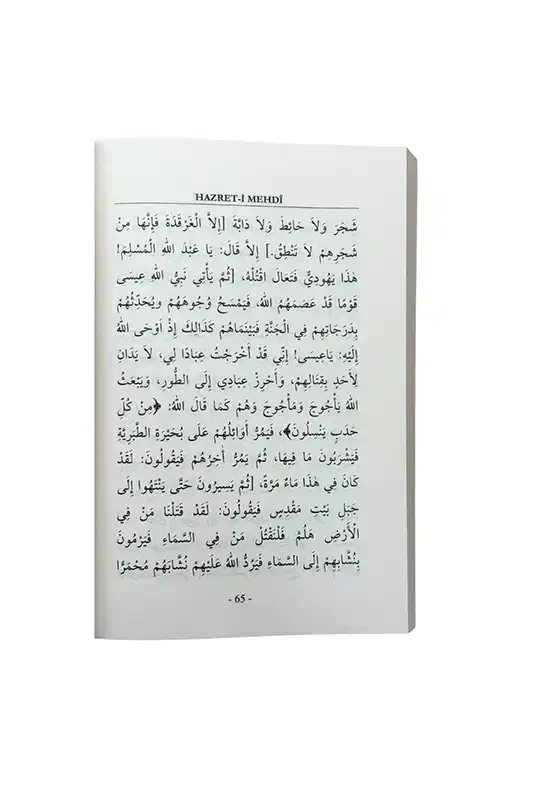 HAZRET-İ MEHDÎ
شَجَرَ وَلاَ حَائِطَ وَلاَ دَابَّةَ [إِلاَّ الْغَرْقَدَةَ فَإِنَّهَا مِنْ
شَجَرِهِمْ لاَ تَنْطِقُ.] إِلاَّ قَالَ: يَا عَبْدَ اللهِ الْمُسْلِمَ!
هٰذَا يَهُودِيٌّ فَتَعَالَ اقْتُلْهُ، [ثُمَّ يَأْتِي نَبِيُّ اللهِ عِيسَى
قَوْمًا قَدْ عَصَمَهُمُ اللهُ، فَيَمْسَحُ وُجُوهَهُمْ وَيُحَدِّثُهُمْ
بِدَرَجَاتِهِمْ فِي الْجَنَّةِ فَبَيْنَمَاهُمْ كَذَالِكَ إِذْ اَوْحَى اللهُ
إِلَيْهِ: يَاعِيسَى! إِنِّي قَدْ أَخْرَجْتُ عِبَادًا لِي، لاَ يَدَانِ
لِأَحَدٍ بِقِتَالِهِمْ، وَأَحْرِزْ عِبَادِي إِلَى الطُّورِ، وَيَبْعَثُ
اللهُ يَأْجُوجَ وَمَأْجُوجَ وَهُمْ كَمَا قَالَ اللهُ: ﴿مِنْ كُلِّ
حَدَبٍ يَنْسِلُونَ﴾، فَيَمُرُّ أَوَائِلُهُمْ عَلَى بُحَيْرَةِ الطَّبَرِيَّةِ
فَيَشْرَبُونَ مَا فِيهَا، ثُمَّ يَمُرُّ اٰخِرُهُمْ فَيَقُولُونَ: لَقَدْ
كَانَ فِي هٰذَا مَاءٌ مَرَّةً، [ثُمَّ يَسِيرُونَ حَتَّى يَنْتَهُوا إِلَى
جَبَلِ بَيْتِ مَقْدِسٍ فَيَقُولُونَ: لَقَدْ قَتَلْنَا مَنْ فِي
الْأَرْضِ هَلُمَّ فَلْنَقْتُلْ مَنْ فِي السَّمَاءِ فَيَرْمُونَ
بِنُشَّابِهِمْ إِلَى السَّمَاءِ فَيَرُدُّ اللهُ عَلَيْهِمْ نُشَّابَهُمْ مُحْمَرًّا
- 65 -